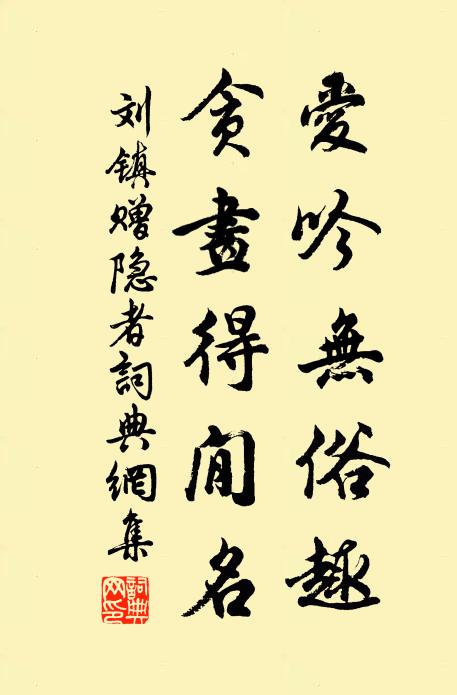 愛吟無俗趣
貪畫得閒名
刘镇赠隐者詞典網集
詞典网印